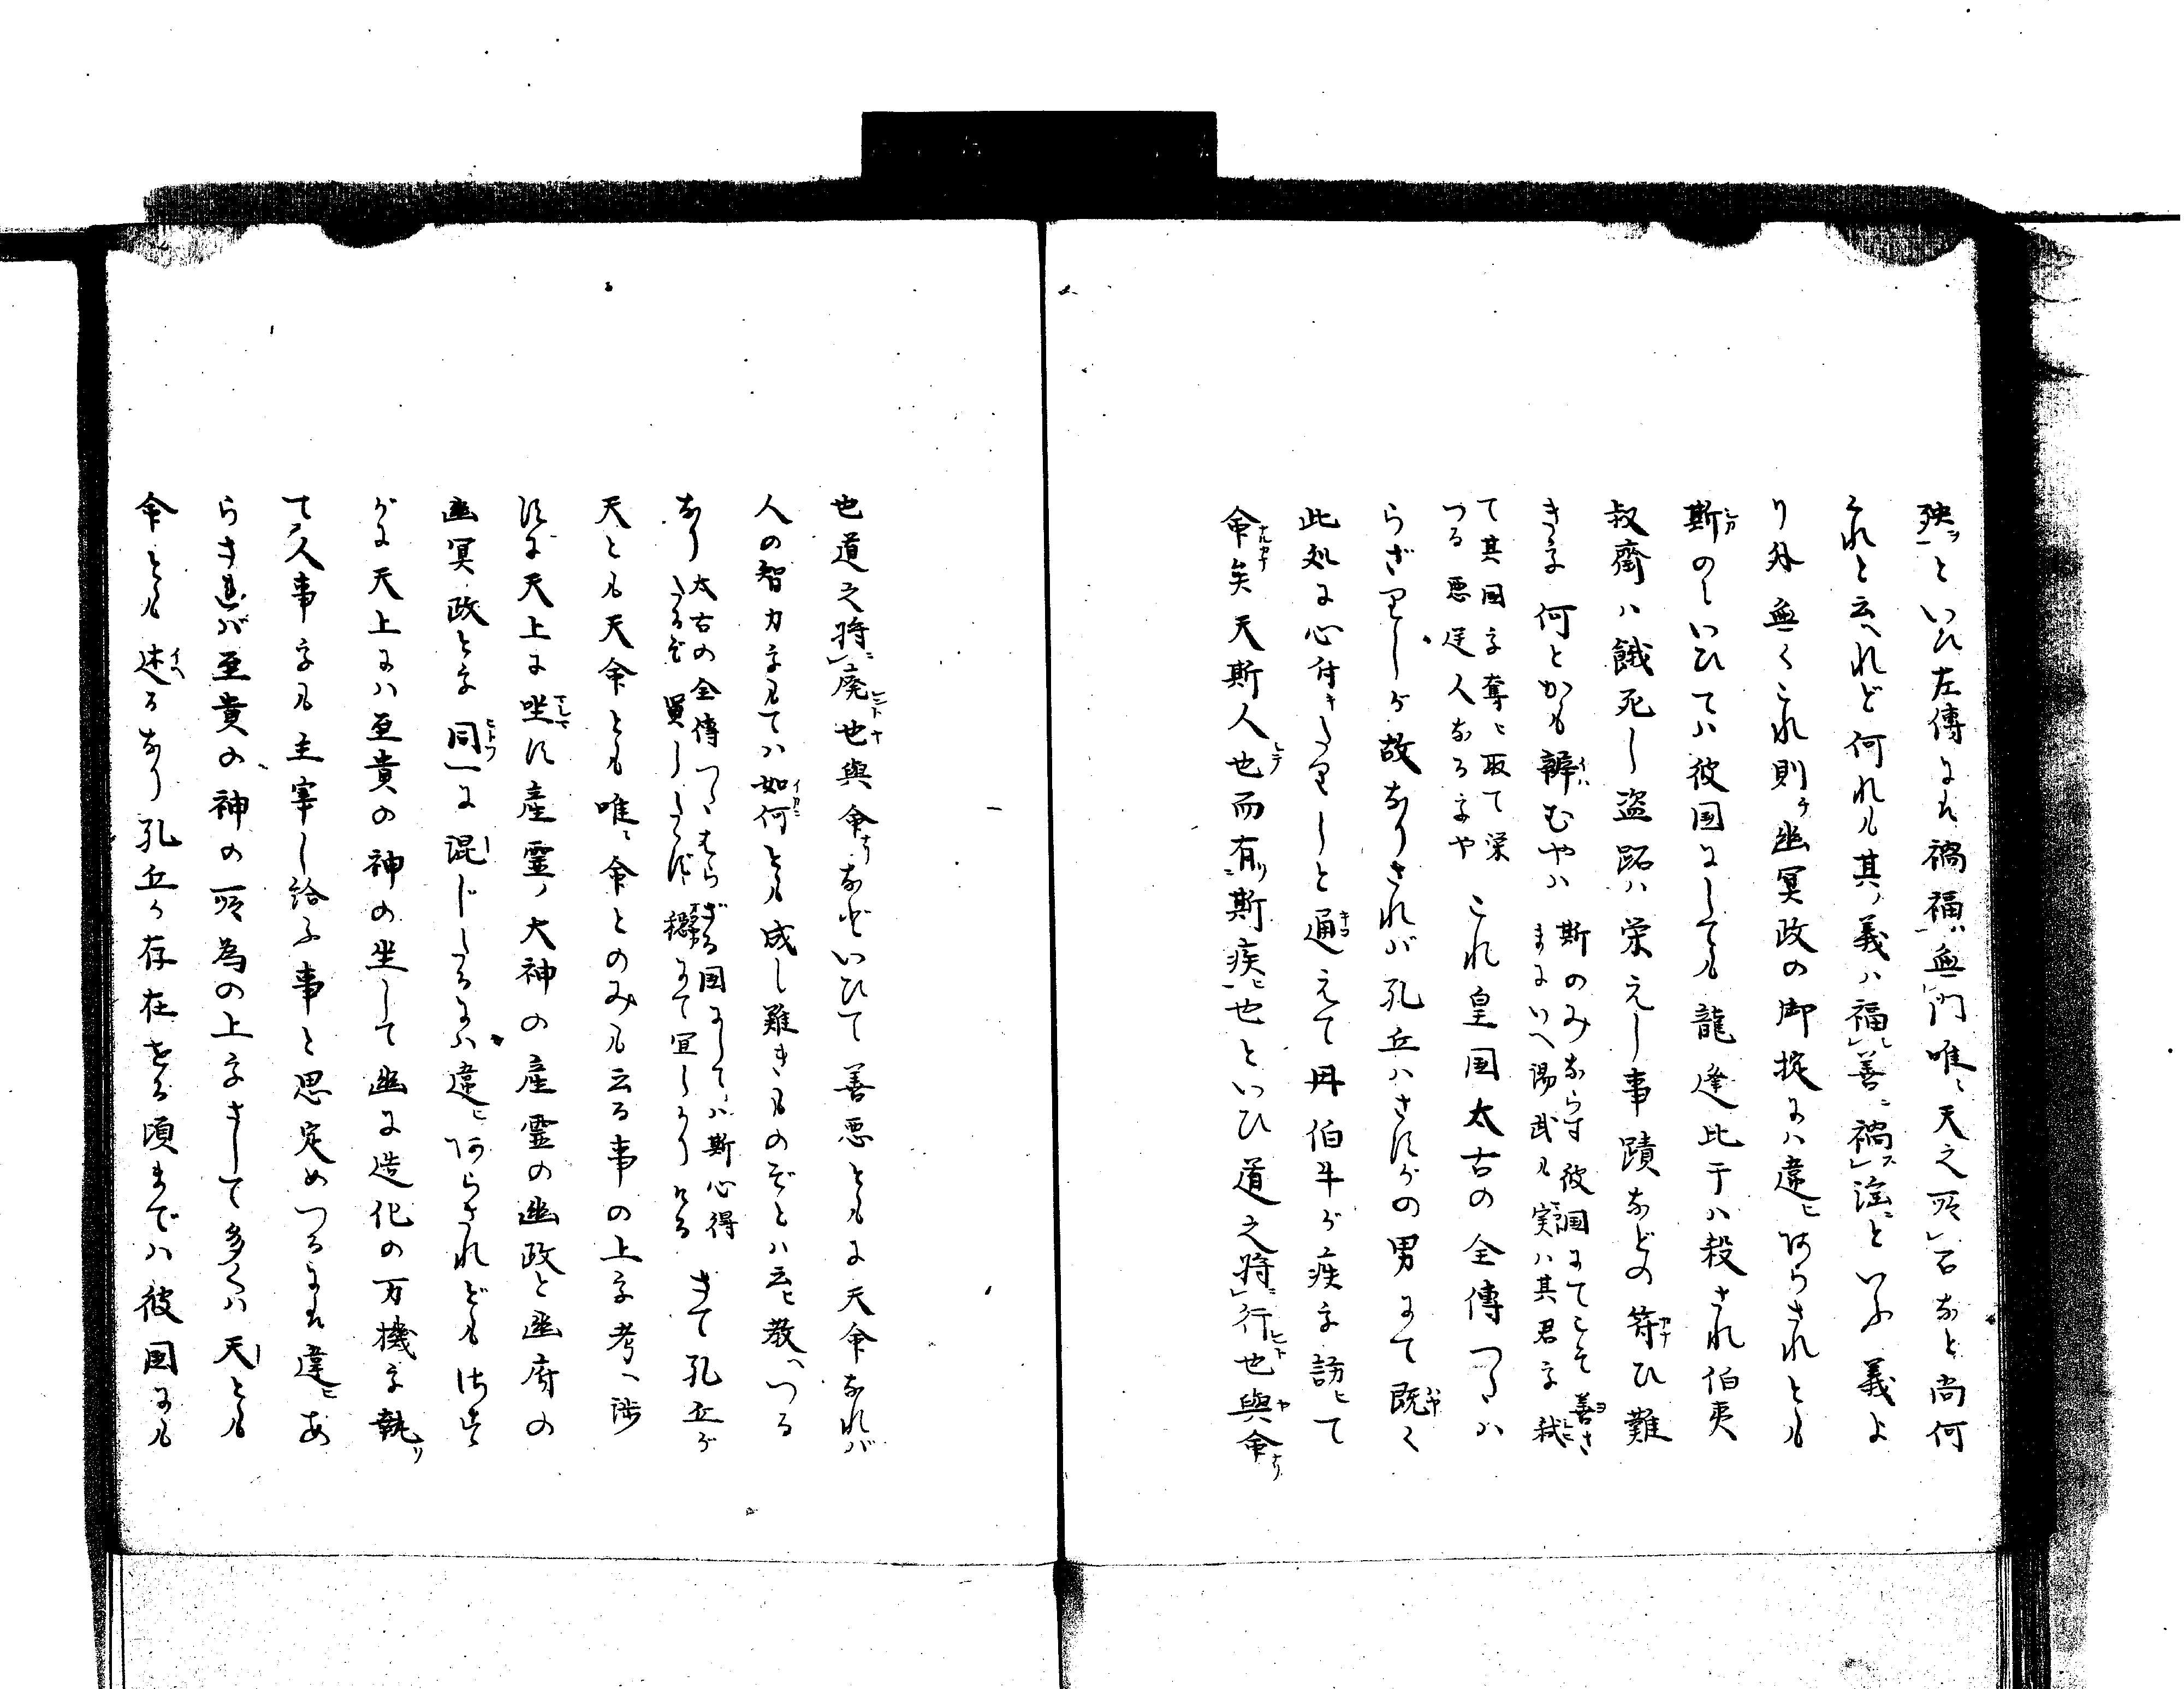 殃ヲといひ左傳にも禍福ハ無門唯々天之所召なと尚何
くれと云へれど何れも其ノ義ハ福シ善ニ禍ス淫ニといふ義よ
り外無くこれ則チ幽冥政の御掟にハ違ヒあらされとも
斯のミいひてハ彼国にしても龍逢比干ハ殺され伯夷
叔齊ハ餓死し盗跖ハ栄えし事蹟などの符ひ難
きを何とかも辨むやハ
斯のみならす彼国にてこそ善さ
まにいへ湯武も実ハ其君を弑
て其国を奪ヒ取て栄
つる悪逆人なるをや
これ皇国太古の全傳つたハ
らざりしが故なりされバ孔丘ハさすがの男にて既く
此処に心付きたりしと通えて冉伯牛が疾を訪ヒて
命矣夫斯人也而有斯疾也といひ道之將行也與命
也道之將廃也與命なといひて善悪ともに天命なれバ
人の智力をもてハ如何とも成し難きものぞとハ云ヒ教へつる
なり
太古の全傳つたはらざる国にしてハ斯心得
たるぞ
穏にて宜しかりける
さて孔丘が
天とも天命とも唯々命とのみも云る事の上を考へ渉
すに天上に坐す産霊ノ大神の産霊の幽政と幽府の
幽冥政とを同一に混じたるにハ違ヒあらされども
がに天上にハ至貴の神の坐して幽に造化の万機を執り
て人事をも主宰し給ふ事と思定めつるにも違ヒあ
らされバ至貴の神の所為の上をさして多くハ天とも
命とも述るなり孔丘が存在せる頃までハ彼国にも